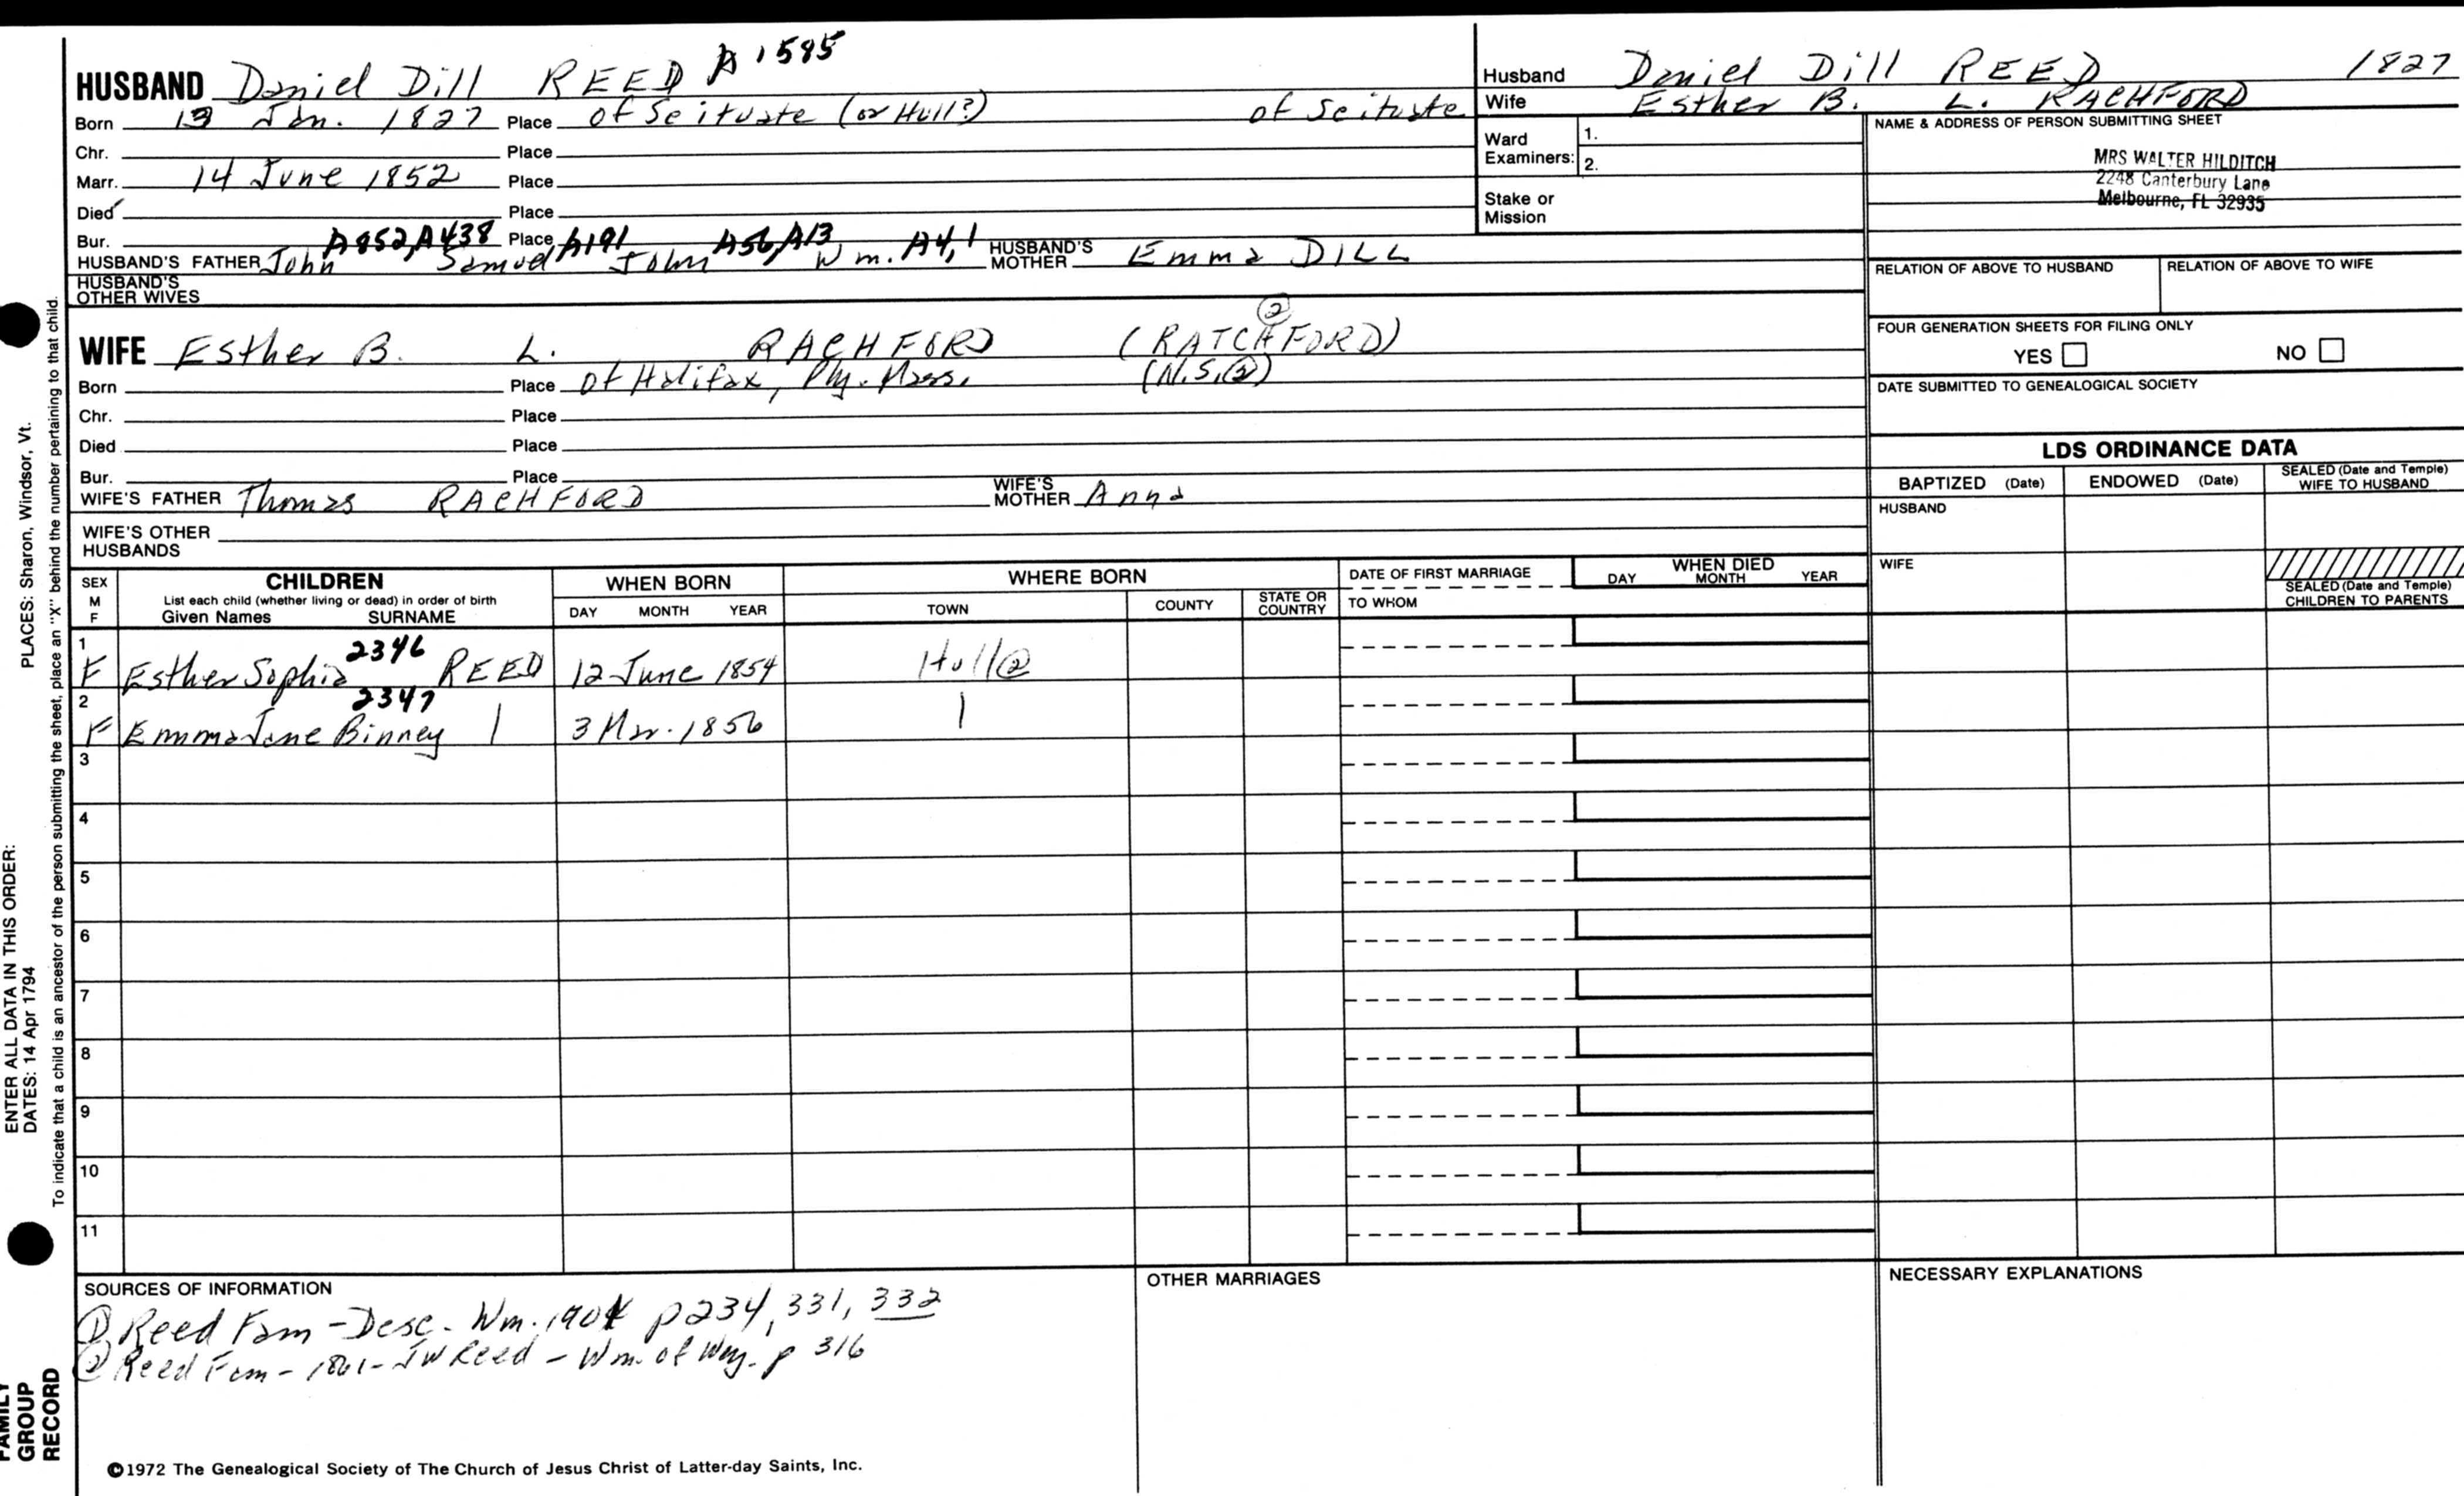 HUSBAND Daniel Dill REED A1595
Born 13 Jan. 1827 Place of Scituate (or Hull?) of Scituate
Chr. Place
Marr. 14 June 1852 Place
Died Place
Bur. Place
A852, A438 A191 A56, A13 A4, 1
HUSBAND'S FATHER John Samuel John Wm. HUSBAND'S MOTHER Emma DILL
HUSBAND'S OTHER WIVES
Husband Daniel Dill REED 1827
Wife Esther B. L. RACHFORD
Ward Examiners: 1.
2.
Stake or Mission
NAME & ADDRESS OF PERSON SUBMITTING SHEET
MRS WALTER HILDITCH
2248 Canterbury Lane
Melbourne, FL 32935
RELATION OF ABOVE TO HUSBAND RELATION OF ABOVE TO WIFE
FOUR GENERATION SHEETS FOR FILING ONLY
YES NO
DATE SUBMITTED TO GENEALOGICAL SOCIETY
WIFE Esther B. L. RACHFORD (RATCHFORD) ②
Born Place of Halifax, Ply. Mass. (N.S.②)
Chr. Place
Died Place
Bur. Place
WIFE'S FATHER Thomas RACHFORD WIFE'S MOTHER Anna
WIFE'S OTHER HUSBANDS
LDS ORDINANCE DATA
BAPTIZED (Date) ENDOWED (Date) SEALED (Date and Temple) WIFE TO HUSBAND
HUSBAND
WIFE
SEALED (Date and Temple) CHILDREN TO PARENTS
SEX M F
CHILDREN
List each child (whether living or dead) in order of birth
Given Names SURNAME
WHEN BORN
DAY MONTH YEAR
WHERE BORN
TOWN COUNTY STATE OR COUNTRY
DATE OF FIRST MARRIAGE
TO WHOM
WHEN DIED
DAY MONTH YEAR
1 F Esther Sophia 2346 REED 12 June 1854 Hull②
2 F Emma Jane Binney 2347 | 3 Mar. 1856 |
3
4
5
6
7
8
9
10
11
SOURCES OF INFORMATION
① Reed Fam - Desc. Wm. 1901 p234, 331, 332
② Reed Fam - 1861 - JW Reed - Wm. of Wey. p 316
OTHER MARRIAGES
NECESSARY EXPLANATIONS
©1972 The Genealogical Society of The Church of Jesus Christ of Latter-day Saints, Inc.
FAMILY GROUP RECORD
ENTER ALL DATA IN THIS ORDER:
DATES: 14 Apr 1794
PLACES: Sharon, Windsor, Vt.
To indicate that a child is an ancestor of the person submitting the sheet, place an "X" behind the number pertaining to that child.